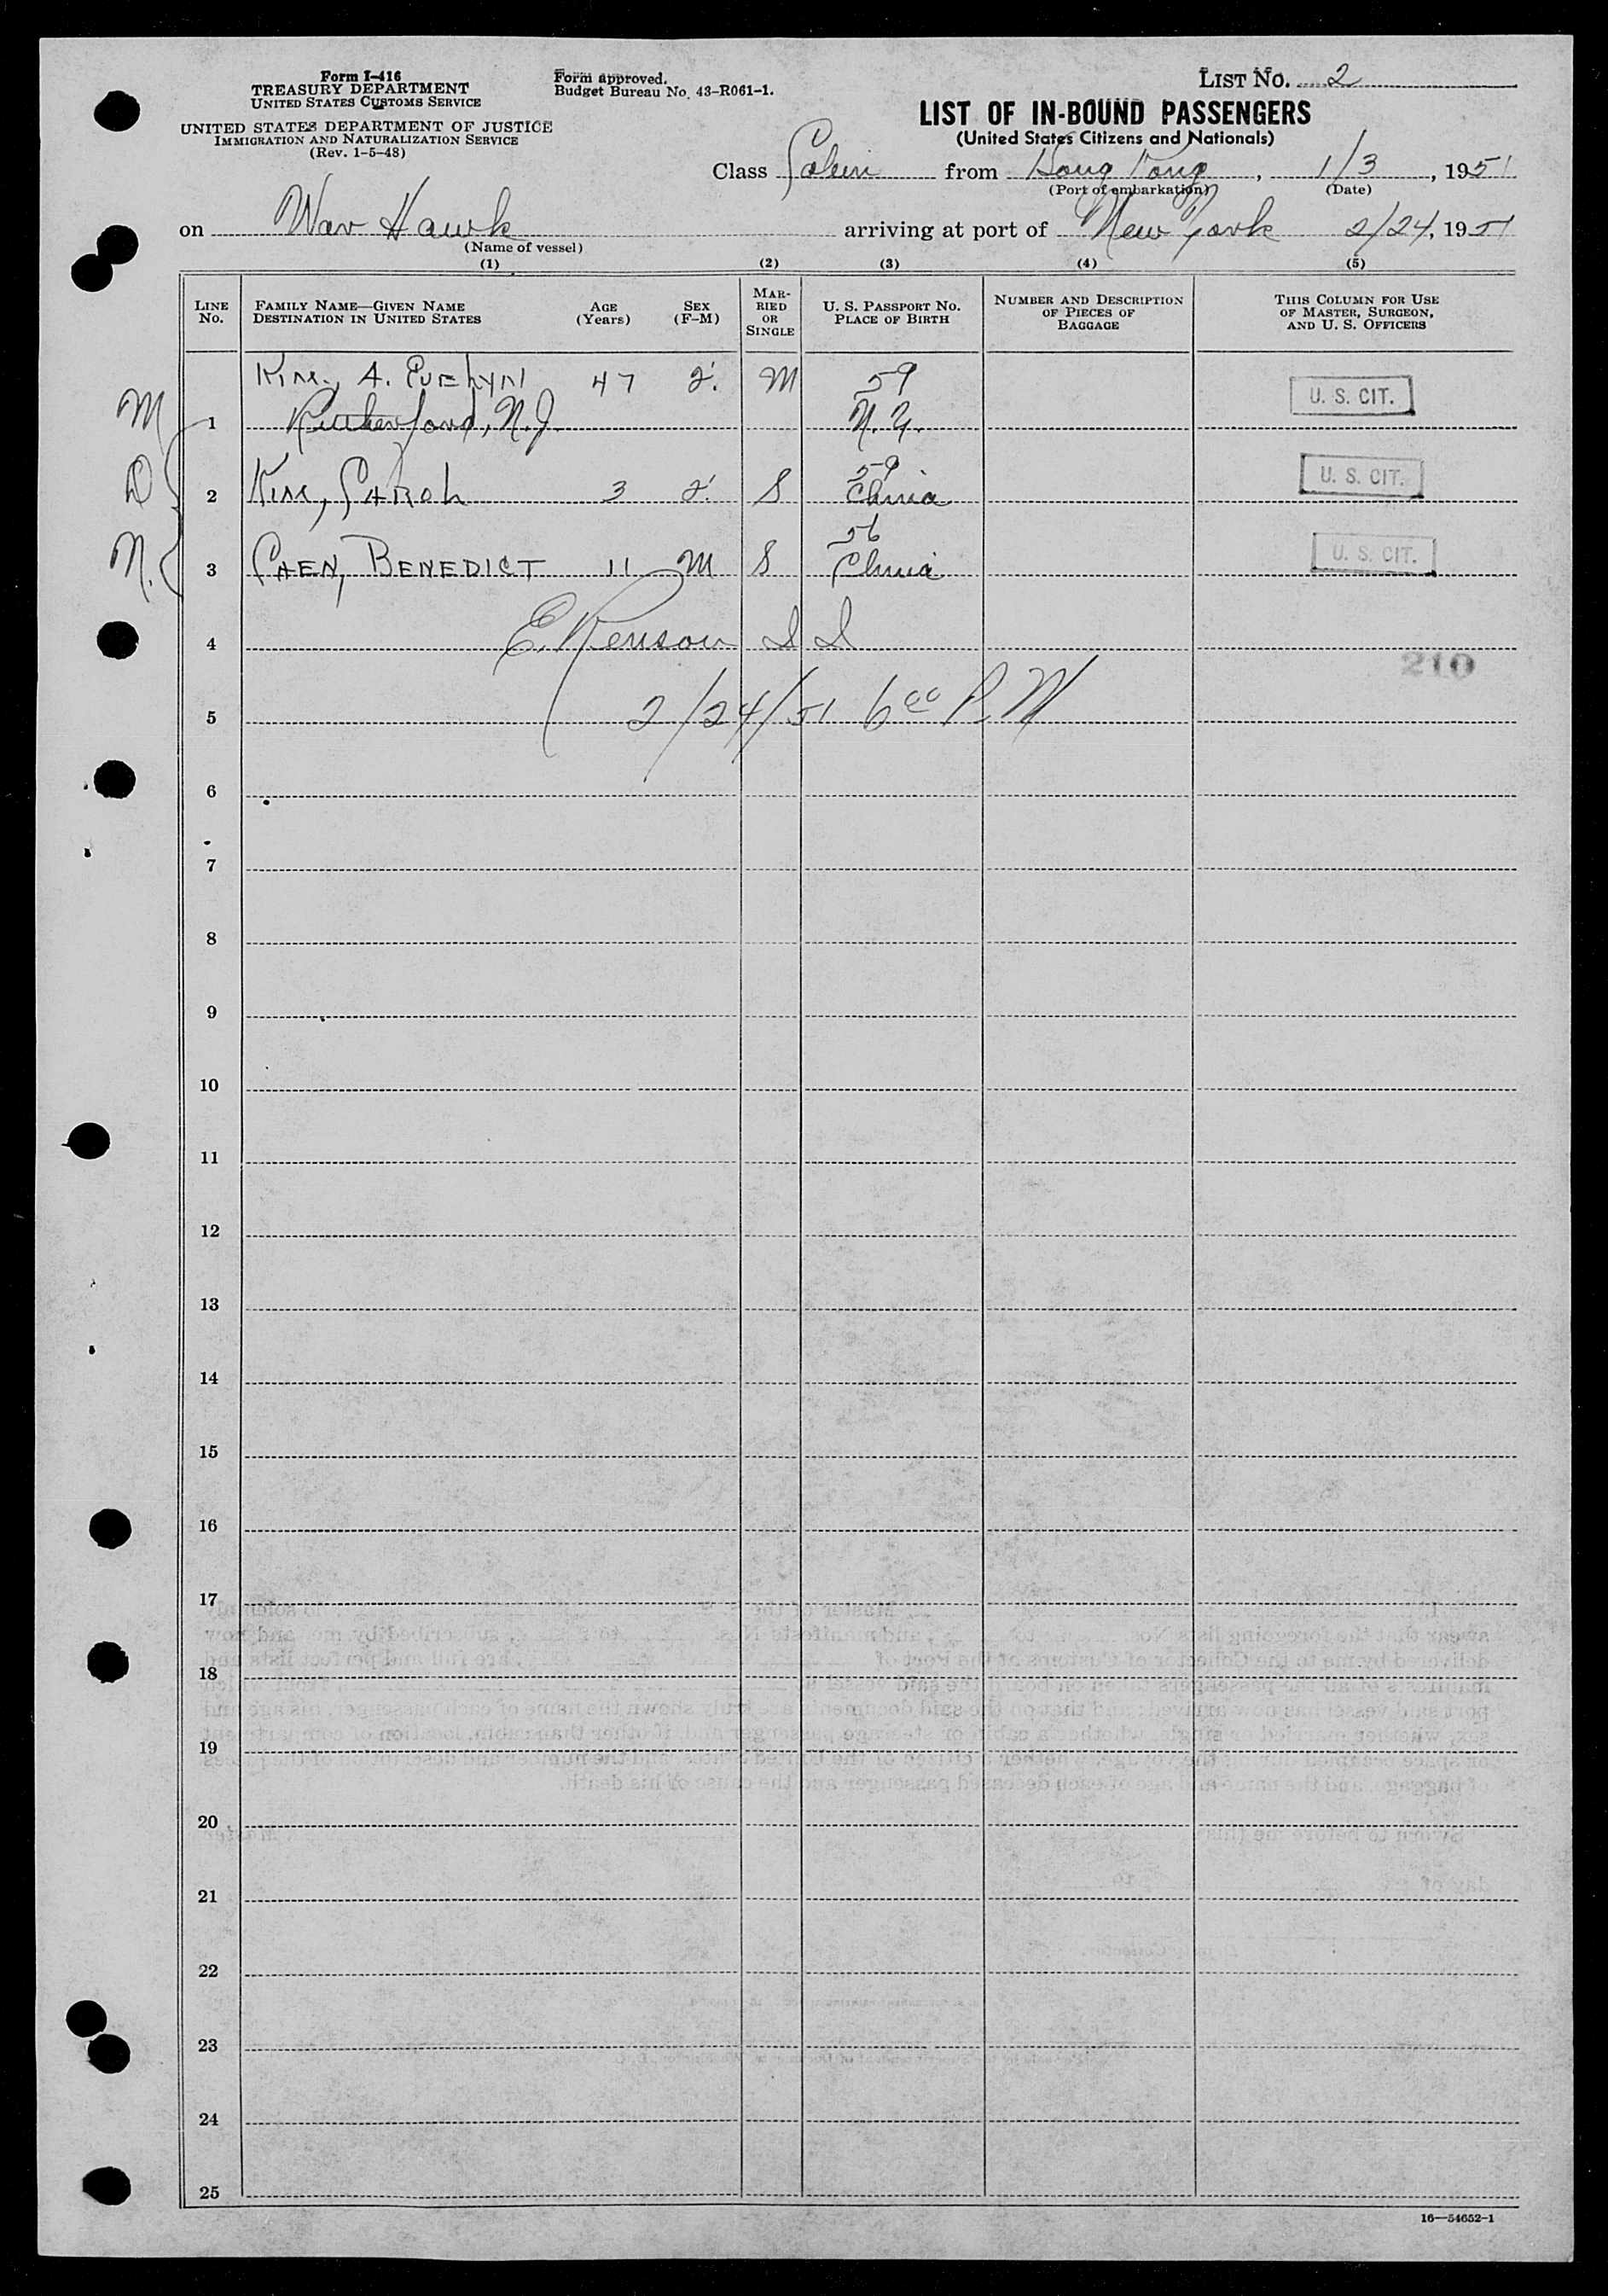 Form I-416
TREASURY DEPARTMENT
UNITED STATES CUSTOMS SERVICE
UNITED STATES DEPARTMENT OF JUSTICE
IMMIGRATION AND NATURALIZATION SERVICE
(Rev. 1-5-48)
Form approved.
Budget Bureau No. 43-R061-1.
LIST NO. 2
LIST OF IN-BOUND PASSENGERS
(United States Citizens and Nationals)
Class Cabin from Hong Kong, 1/3, 1951
(Port of embarkation) (Date)
on War Hawk arriving at port of New York 2/24, 1951
(Name of vessel)
(1) (2) (3) (4) (5)
LINE No.
FAMILY NAME—GIVEN NAME
DESTINATION IN UNITED STATES
AGE (Years)
SEX (F-M)
MARRIED OR SINGLE
U. S. PASSPORT NO.
PLACE OF BIRTH
NUMBER AND DESCRIPTION OF PIECES OF BAGGAGE
THIS COLUMN FOR USE OF MASTER, SURGEON, AND U. S. OFFICERS
A. 47 M 59 U. S. CIT.
M 1 Rutherford, N.J. N.Y.
59 U. S. CIT.
D 2 CAROL 3 S China
56
N. 3 BENEDICT 11 M S China U. S. CIT.
4 210
5 2/24/51 6 00 P M
6
7
8
9
10
11
12
13
14
15
16
17
18
19
20
21
22
23
24
25
16—54652-1